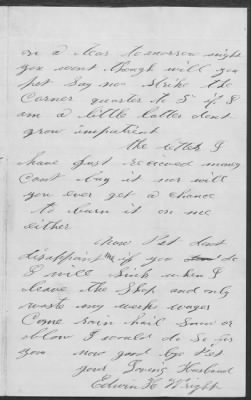 on a tear tomorrow night
you wont though will you
pet say now strike the
corner quarter to 5 if I
am a little latter dont
grow impatient
the letter I
have just recieved money
cant buy it nor will
you ever get a chance
to burn it on me
either
Now Pet dont
disappoint me if you do
I will sick when I
leave the Shop and only
waste my weeks wages
Come rain hail snow or
blow I would do so for
you Now good bye Pet
your loving Husband
Edwin H Wright